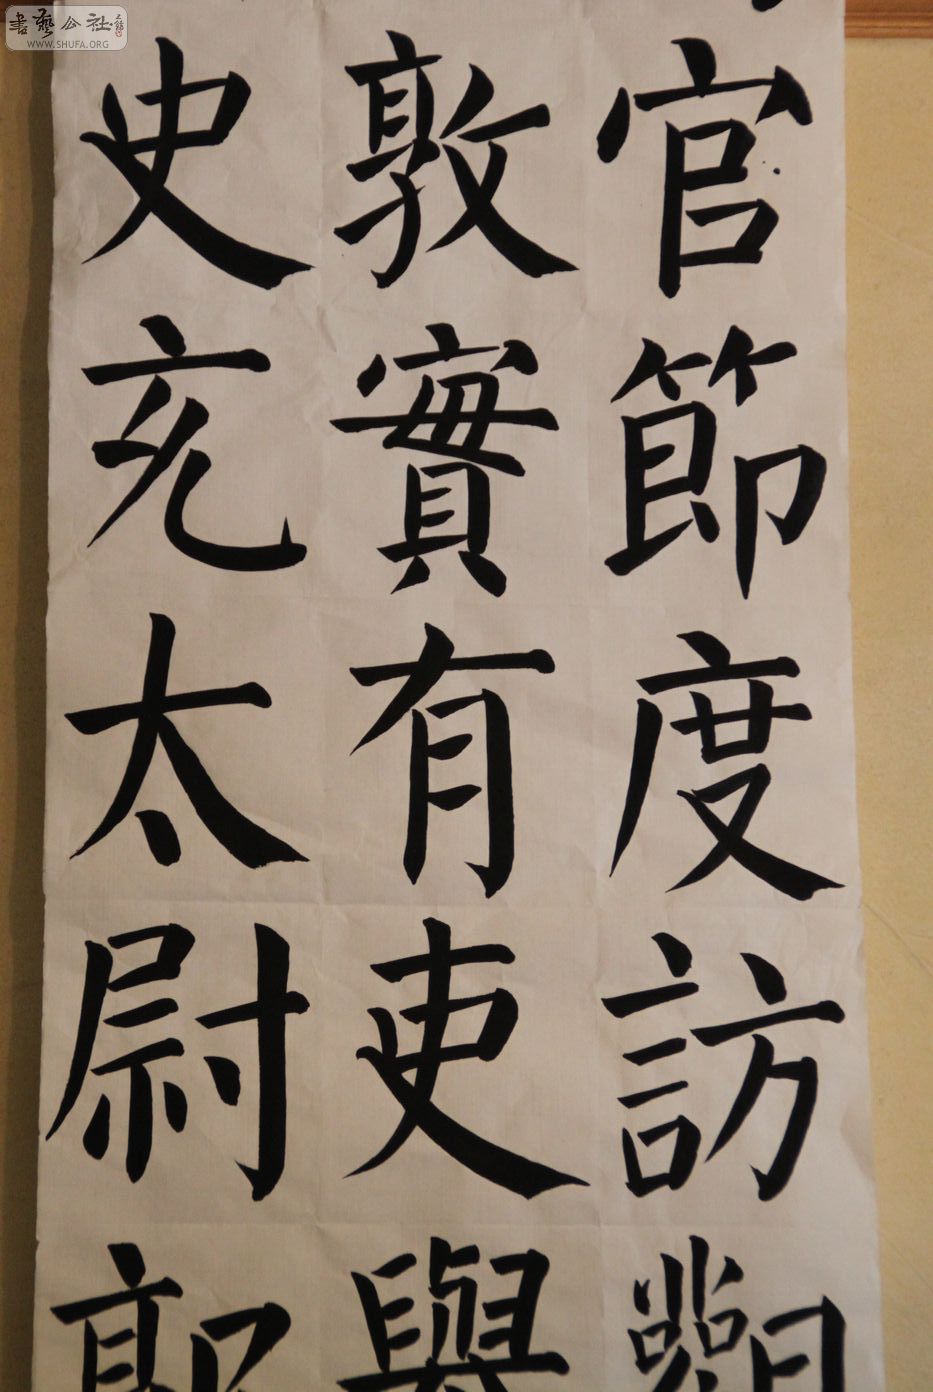 官節度訪觀
敦實有吏與
史充太尉郭
書藝公社
WWW.SHUFA.ORG